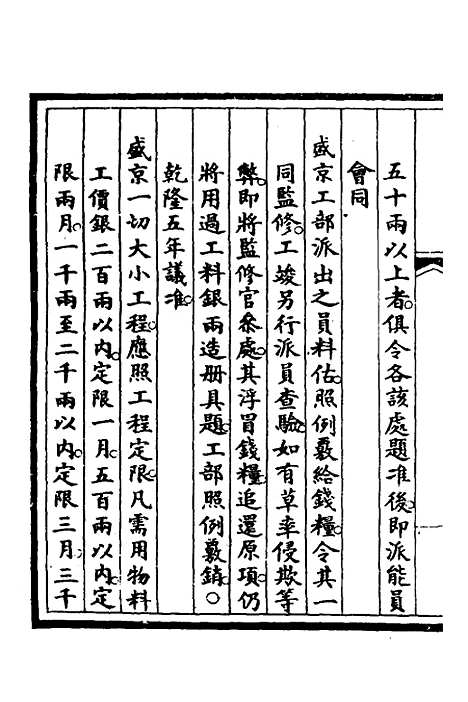 五十兩以上者。俱令各該處題准後。即派能員
會同
盛京工部派出之員料估。照例覈給錢糧。令其一
同監修。工竣另行派員查驗。如有草率侵欺等
弊。即將監修官叅處。其浮冒錢糧。追還原項。仍
將用過工料銀兩造册具題。工部照例覈銷。○
乾隆五年議准。
盛京一切大小工程。應照工程定限。凡需用物料
工價銀二百兩以內。定限一月。五百兩以內。定
限兩月。一千兩至二千兩以內。定限三月。三千